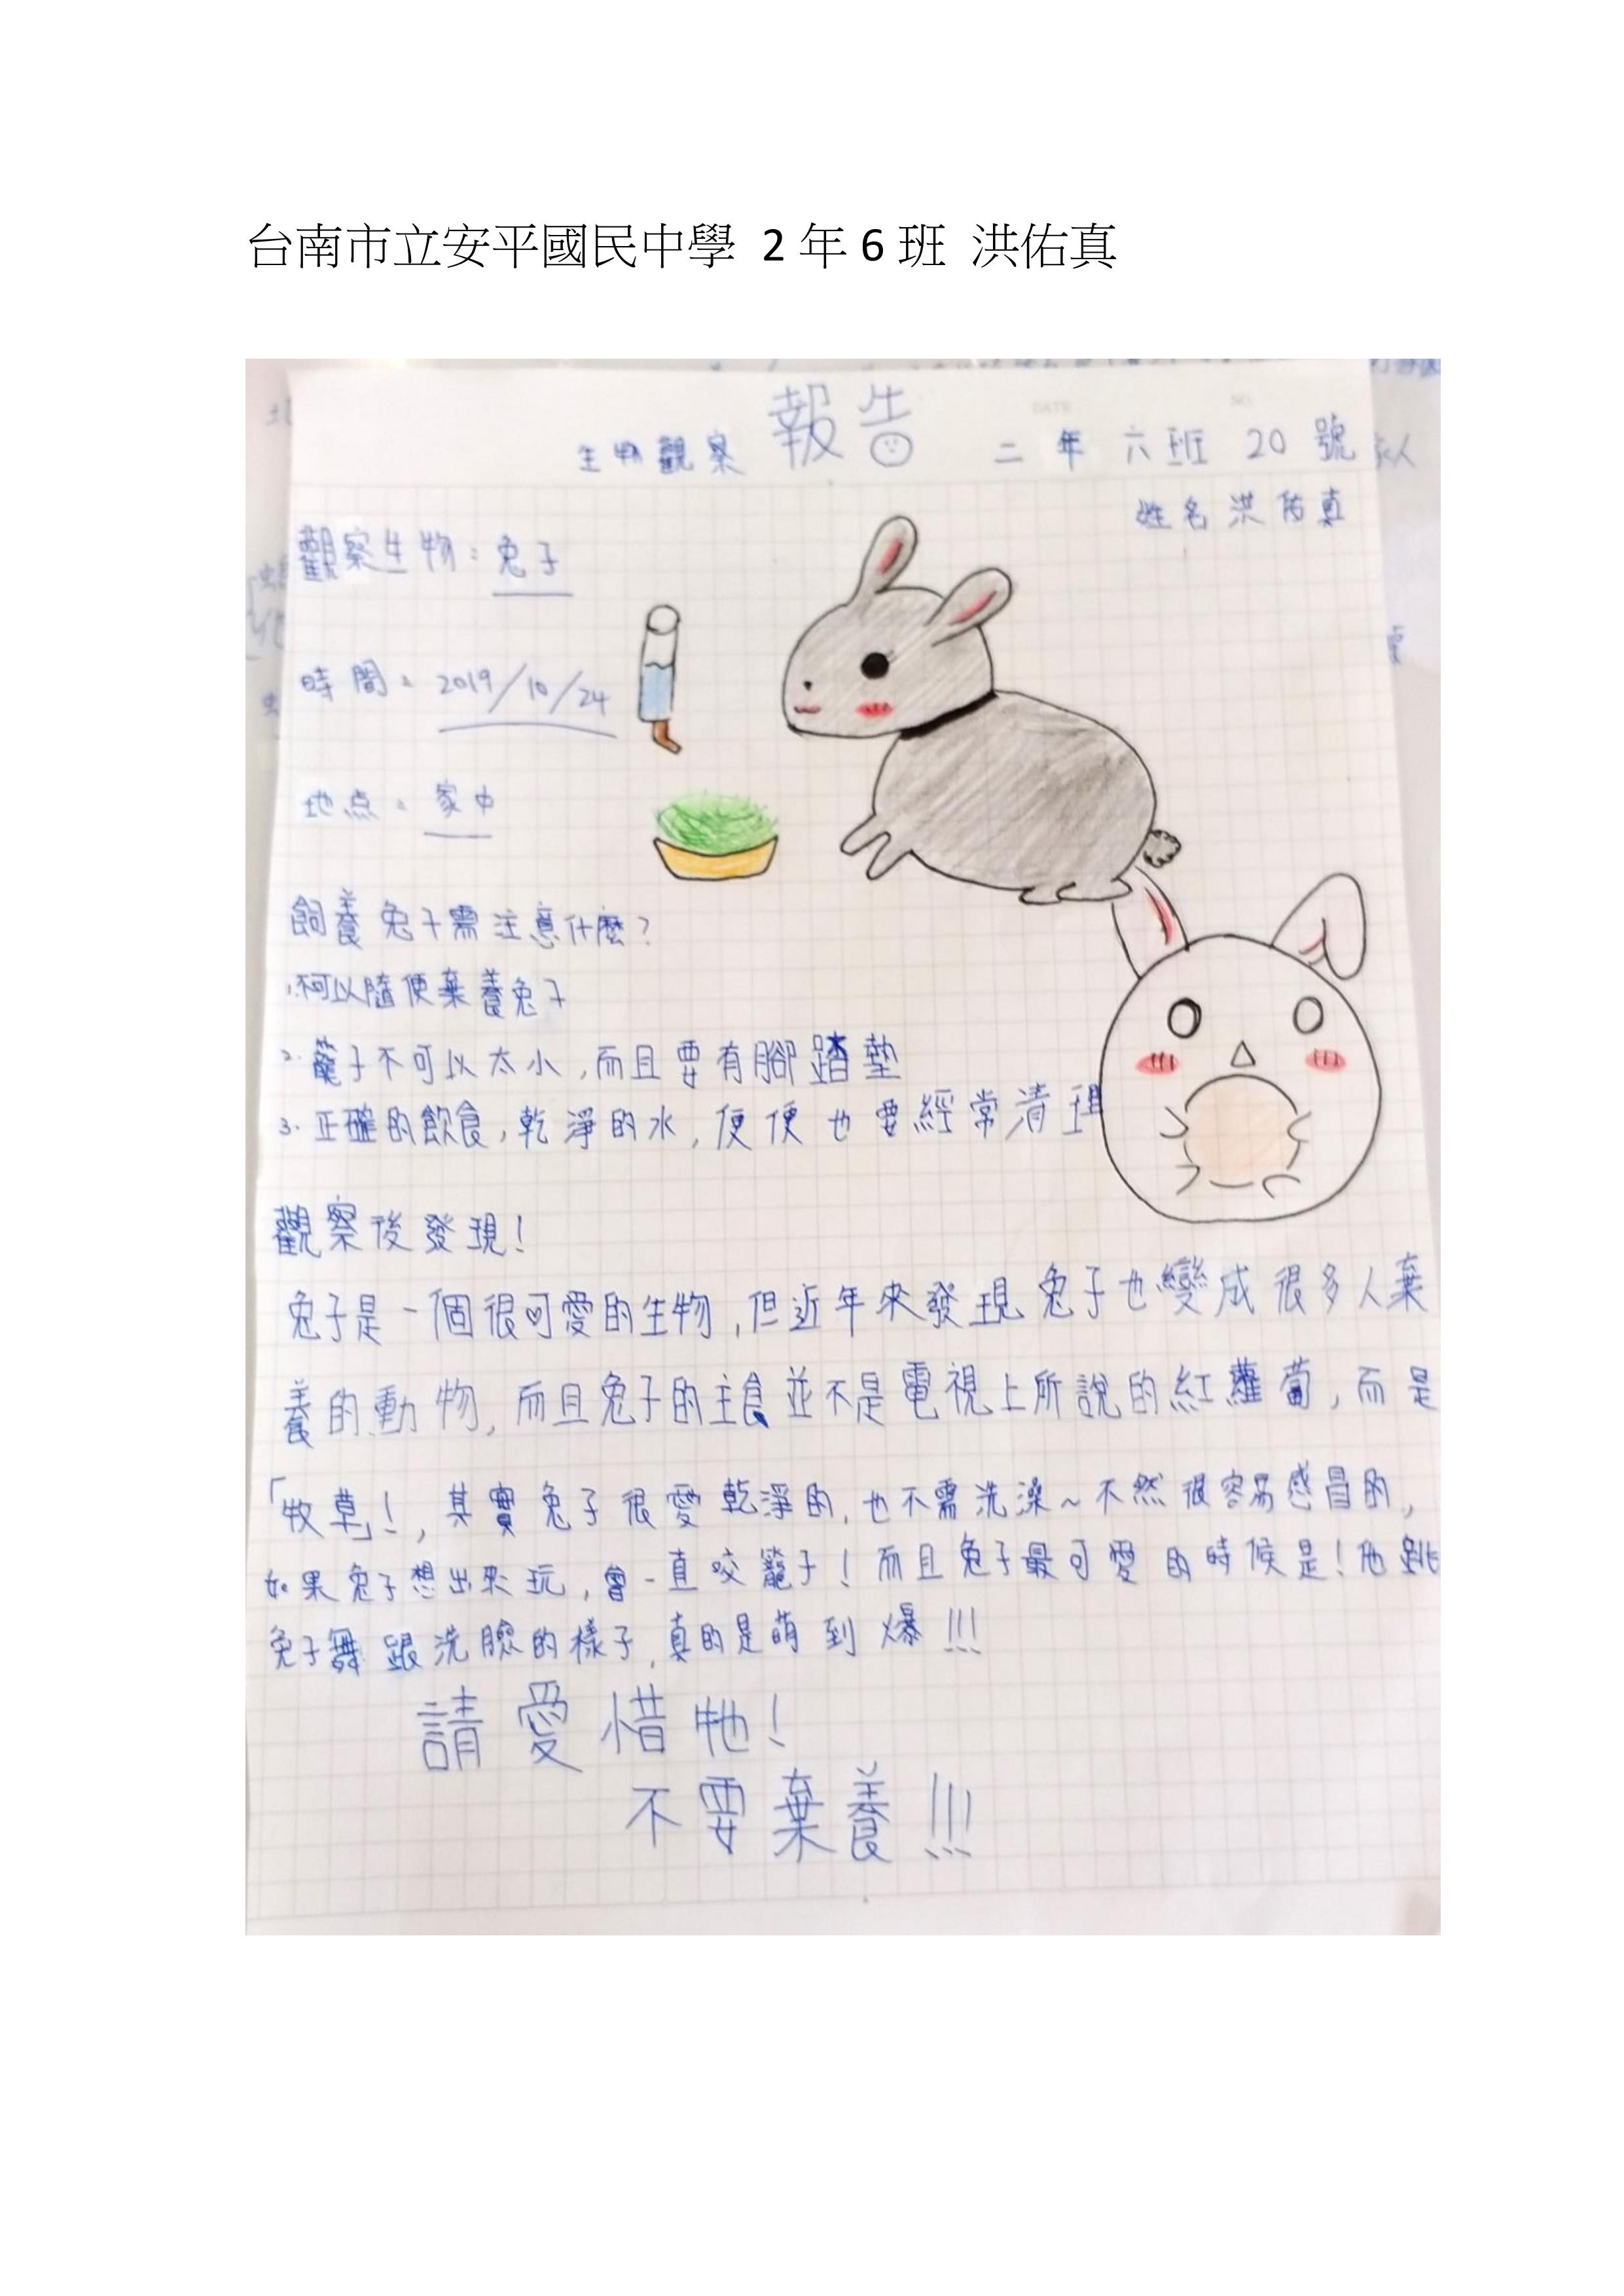 台南市立安平國民中學 2年6班 洪佑真
生物觀察 報告 二年六班 20號
姓名洪佑真
觀察生物：兔子
時間：2019/10/24
地点：家中
飼養兔子需注意什麼？
1.不可以隨便棄養兔子
2.籠子不可以太小，而且要有腳踏墊
3.正確的飲食，乾淨的水，便便也要經常清理
觀察後發現！
兔子是一個很可愛的生物，但近年來發現兔子也變成很多人棄
養的動物，而且兔子的主食並不是電視上所說的紅蘿蔔，而是
「牧草」！，其實兔子很愛乾淨的，也不需洗澡~不然很容易感冒的，
如果兔子想出來玩，會一直咬籠子！而且兔子最可愛的時候是！他跳
兔子舞跟洗臉的樣子，真的是萌到爆!!!
請愛惜牠！
不要棄養!!!